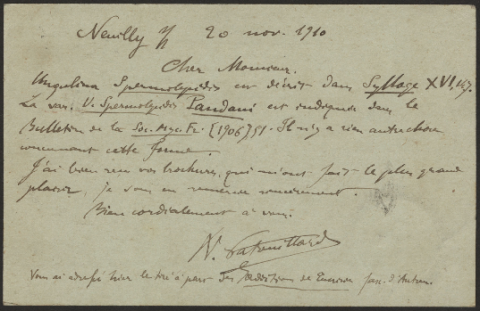 Neuilly s/s 20 nov. 1910
Cher Monsieur.
Ungulina Spermolepidis est décrit dans Sylloge XVI, 157.
La var. U. Spermolepidis Pandani est indiquée dans le
Bulletin de la Soc. Myc. Fr. (1906) 51. Il n'y a rien autre chose
concernant cette forme.
J'ai bien reçu vos brochures, qui m'ont fait le plus grand
plaisir, je vous en remercie sincèrement.
Bien cordialement à vous.
N. Patouillard
Vous ai adressé hier le tiré à part des Additions de